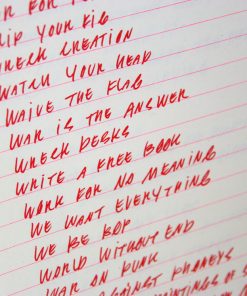 FOR
YOUR
WRECK CREATION
WATCH YOUR HEAD
WAIVE THE FLAG
WAR IS THE ANSWER
WRECK DESKS
WRITE A FREE BOOK
WORK FOR NO MEANING
WE WANT EVERYTHING
WE BE BOP
WORLD WITHOUT END
WAR ON PUNK
AGAINST PHONEYS
PAINTINGS OF